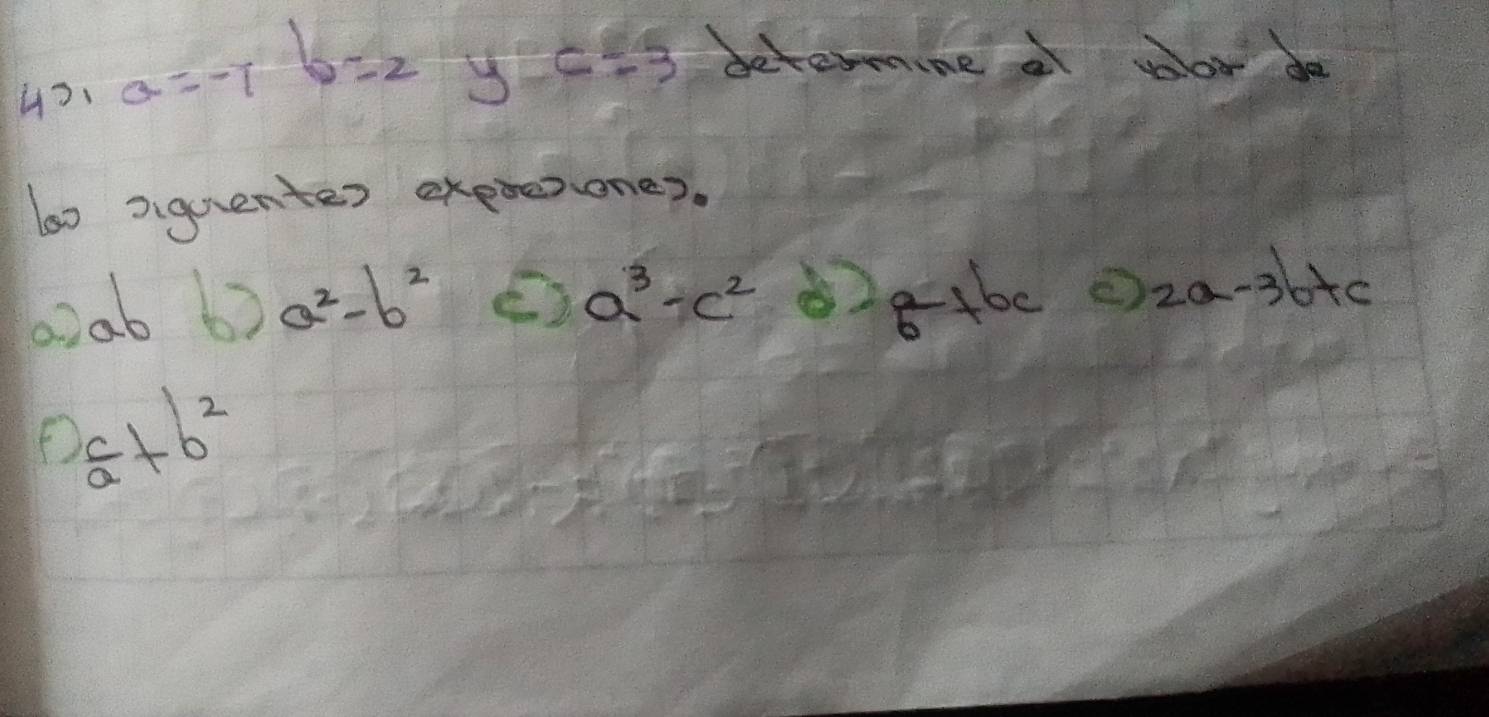 4). a=-1 b=2 y c=3 determine el valor de
las siguientes expresiones.
a) ab b) a²-b² c) a³-c² d) a/b+bc e) 2a-3b+c
f) c/a+b²